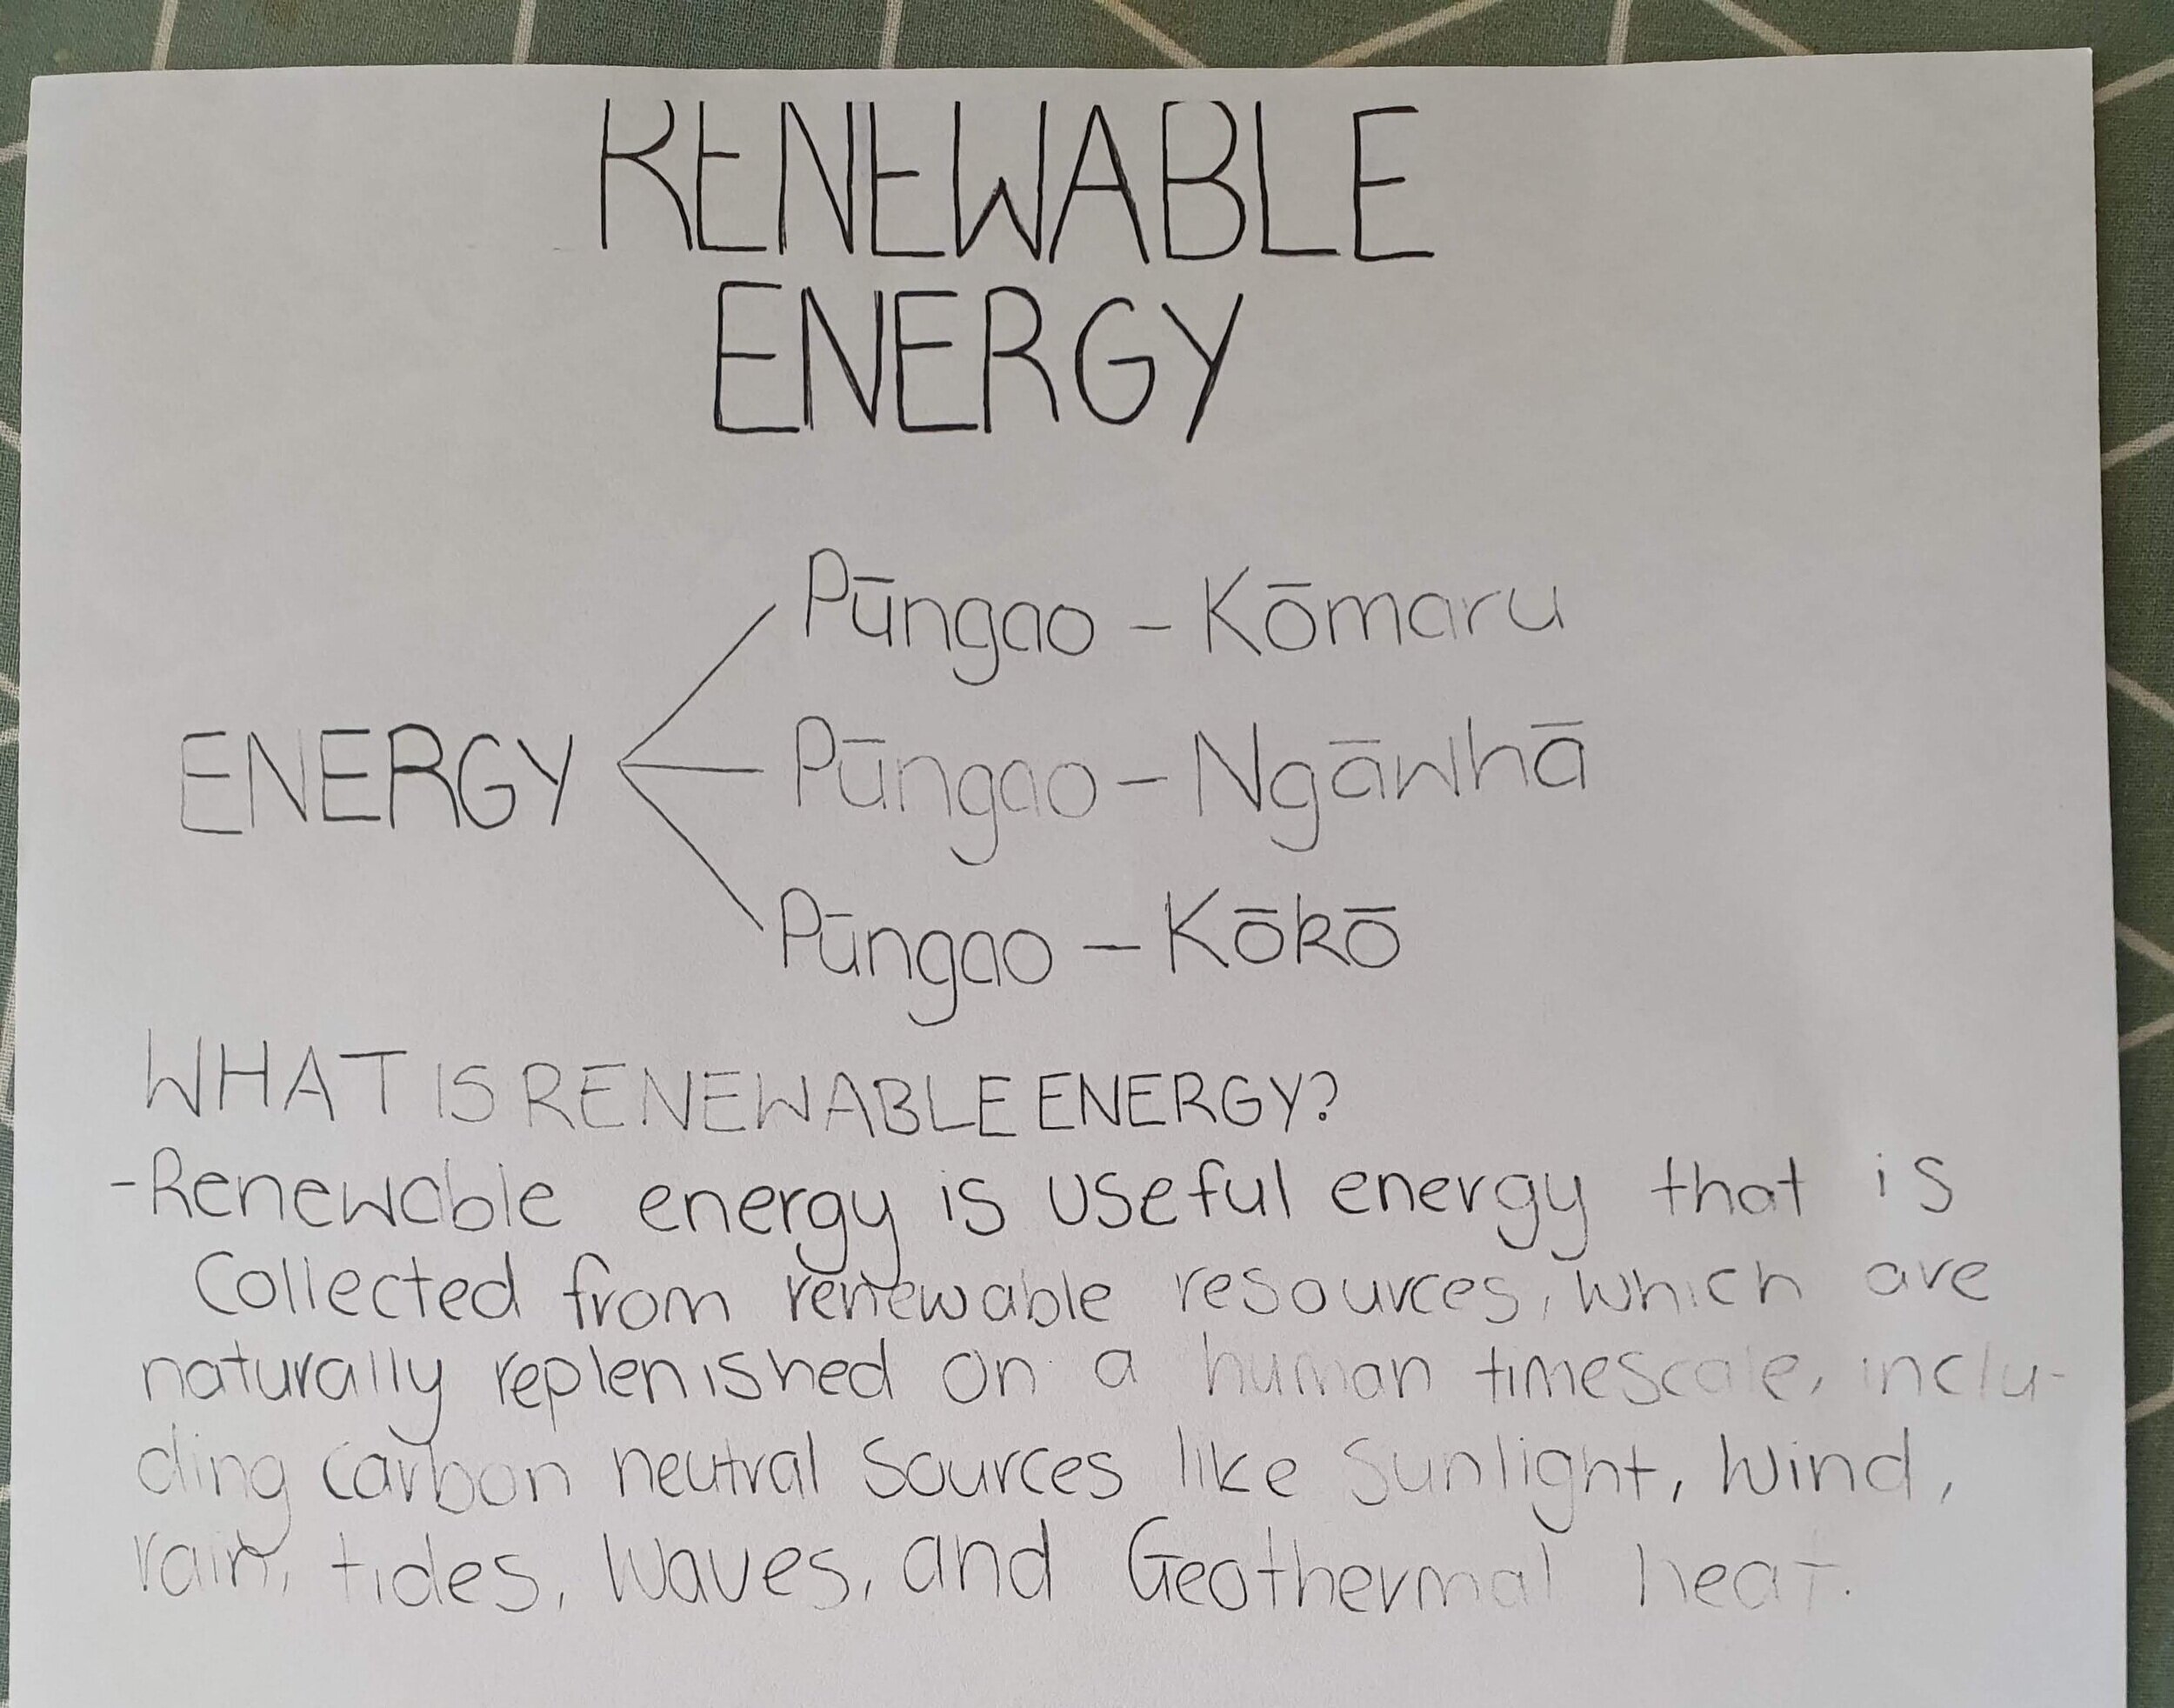 RENEWABLE
ENERGY
Pūngao - Kōmaru
ENERGY
Pūngao - Ngāwhā
Pūngao - Kōkō
WHAT IS RENEWABLE ENERGY?
-Renewable energy is useful energy that is
Collected from renewable resources, which are
naturally replenished on a human timescale, inclu-
ding carbon neutral sources like sunlight, wind,
rain, tides, waves, and Geothermal heat.